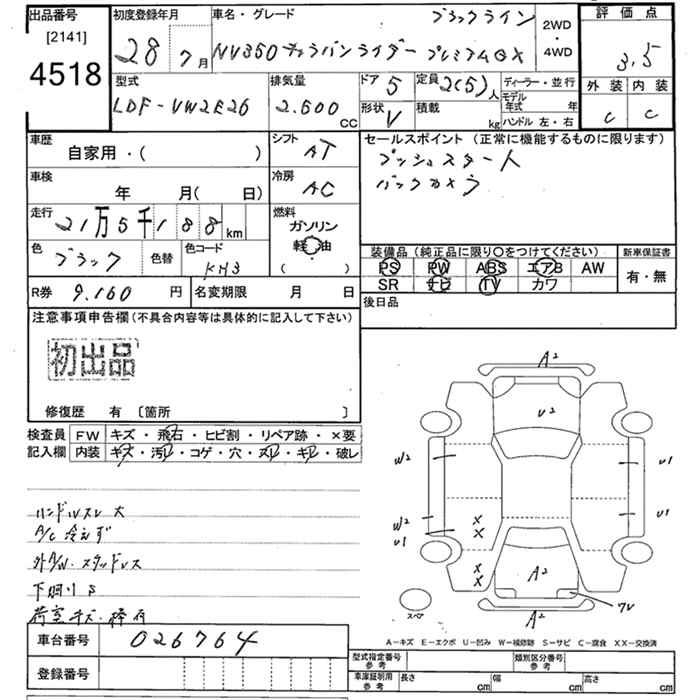 出品番号
[2141]
4518
初度登録年月
28年 7月
車名・グレード
ブラックライン
NV350キャラバンライダー プレミアムGX
2WD
・
4WD
評価点
3.5
外装 内装
C C
型式
LDF-VW2E26
排気量
2.500 CC
ドア 5
形状 V
定員 2(5)人
積載 kg
ディーラー・並行
モデル年式 年
ハンドル 左・右
車歴
自家用・( )
シフト
AT
セールスポイント (正常に機能するものに限ります)
プッシュスタート
バックカメラ
車検
年 月( 日)
冷房
AC
走行
21万5千188km
燃料
ガソリン
軽油
( )
色
ブラック
色替
色コード
KH3
装備品(純正品に限り〇をつけてください)
PS PW ABS エアB AW
SR ナビ TV カワ
新車保証書
有・無
R券 9.160円
名変期限 月 日
後日品
注意事項申告欄(不具合内容等は具体的に記入して下さい)
初出品
修復歴 有 〔箇所 〕
検査員記入欄
FW キズ・飛石・ヒビ割・リペア跡・×要
内装 キズ・汚レ・コゲ・穴・スレ・キレ・破レ
ハンドルスレ大
A/C冷えず
外AW.スタッドレス
下回りS
A2
U2
W2
U1
W2
U1
U1
X
X
X
X
A2
A2
スペア
A-キズ E-エクボ U-凹み W-補修跡 S-サビ C-腐食 XX-交換済
車台番号 026764
登録番号
型式指定番号 参考
類別区分番号 参考
車庫証明用 参考
長さ cm 幅 cm 高さ cm